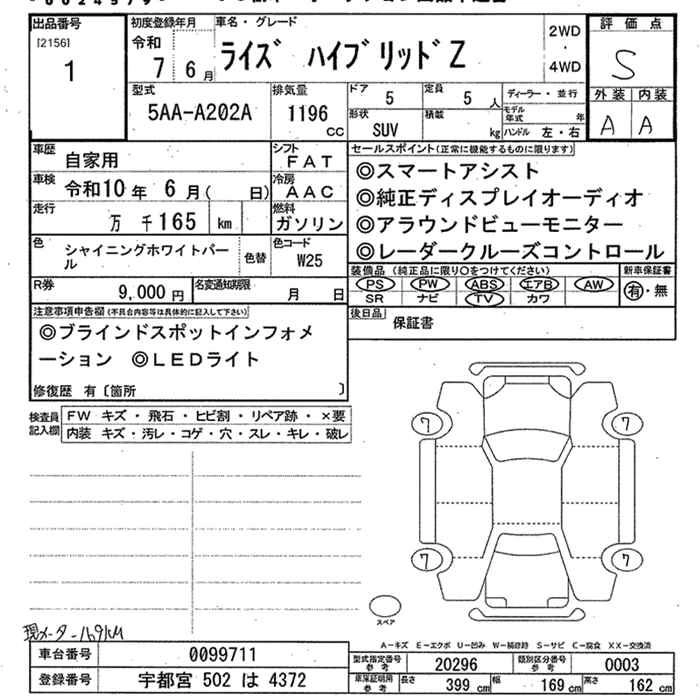 出品番号 初度登録年月 車名・グレード 2WD 評価点
[2156] 令和 ・
1 7 6月 ライズ ハイブリッドZ 4WD S
型式 排気量 ドア 定員 ディーラー・並行 外装 内装
5AA-A202A 1196 cc 5 5 人 モデル年式 年 A A
形状 SUV 積載 kg ハンドル 左・右
車歴 自家用 シフト FAT セールスポイント(正常に機能するものに限ります)
車検 令和10年 6月( 日) 冷房 AAC ◎スマートアシスト
走行 万 千165 km 燃料 ガソリン ◎純正ディスプレイオーディオ
色 シャイニングホワイトパール 色替 色コード W25 ◎アラウンドビューモニター
◎レーダークルーズコントロール
R券 9,000円 名変通知期限 月 日 装備品(純正品に限り○をつけてください) 新車保証書
PS PW ABS エアB AW 有・無
SR ナビ TV カワ
注意事項申告欄(不具合内容等は具体的に記入して下さい) 後日品 保証書
◎ブラインドスポットインフォメ
ーション ◎LEDライト
修復歴 有〔箇所 〕
検査員記入欄 FW キズ・飛石・ヒビ割・リペア跡・×要
内装 キズ・汚レ・コゲ・穴・スレ・キレ・破レ
7 7
7 7
スペア
現メーター169KM
A-キズ E-エクボ U-凹み W-補修跡 S-サビ C-腐食 XX-交換済
車台番号 0099711 型式指定番号参考 20296 類別区分番号参考 0003
登録番号 宇都宮 502 は 4372 車庫証明用参考 長さ 399 cm 幅 169 cm 高さ 162 cm